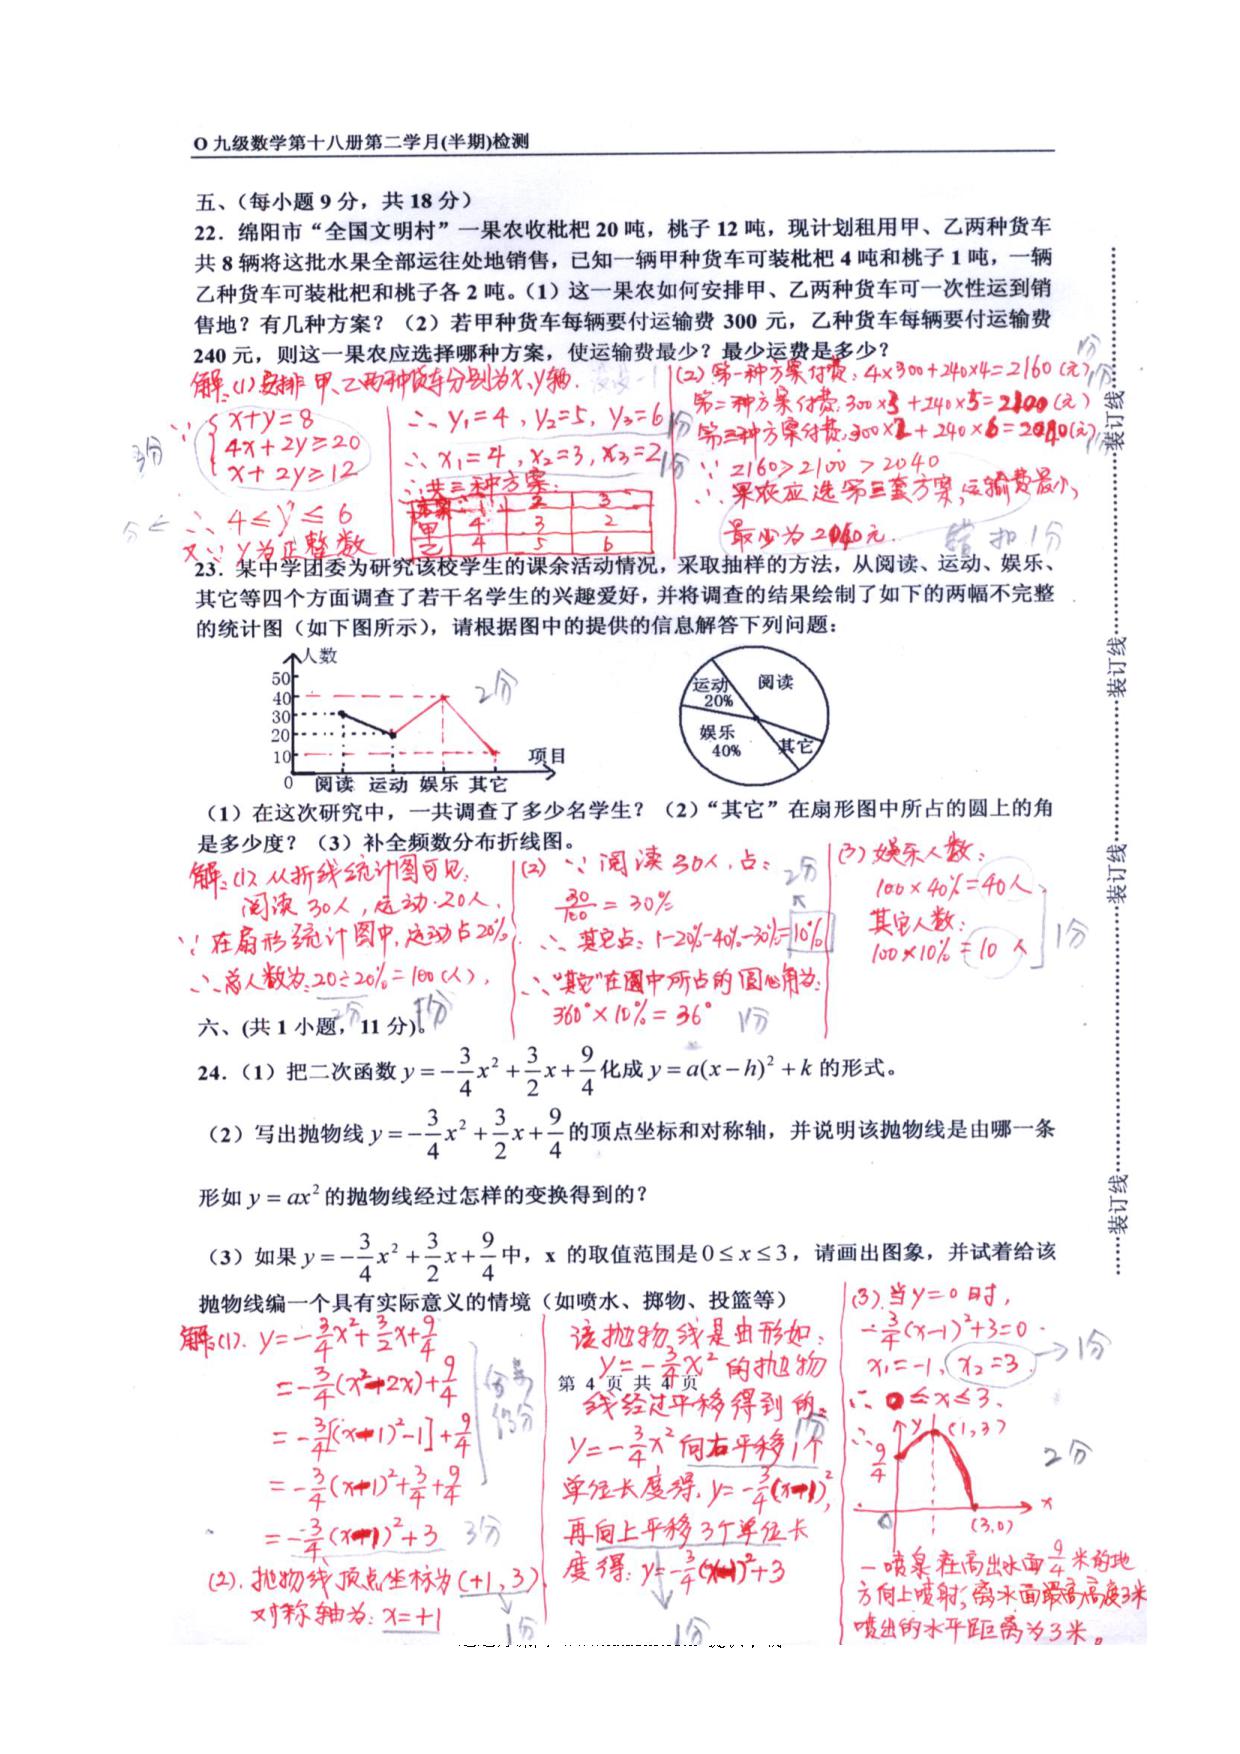 O 九级数学第十八册第二学月(半期)检测
五、（每小题 9 分，共 18 分）
22．绵阳市“全国文明村”一果农收枇杷 20 吨，桃子 12 吨，现计划租用甲、乙两种货车
共 8 辆将这批水果全部运往处地销售，已知一辆甲种货车可装枇杷 4 吨和桃子 1 吨，一辆
乙种货车可装枇杷和桃子各 2 吨。（1）这一果农如何安排甲、乙两种货车可一次性运到销
售地？有几种方案？（2）若甲种货车每辆要付运输费 300 元，乙种货车每辆要付运输费
240 元，则这一果农应选择哪种方案，使运输费最少？最少运费是多少？
解：(1) 安排甲、乙两种货车分别为x、y辆.
∵ { x+y=8
4x+2y≥20
x+2y≥12
3分
∴ 4≤y≤6
又∵ y为正整数
∴ y₁=4，y₂=5，y₃=6 1分
∴ x₁=4，x₂=3，x₃=2 1分
∴ 共三种方案：
方案 1 2 3
甲 4 3 2
乙 4 5 6
(2) 第一种方案付费：4×300+240×4=2160（元） 1分
第二种方案付费：300×3+240×5=2100（元）
第三种方案付费：300×2+240×6=2040（元）
∵ 2160>2100>2040
∴ 果农应选第三套方案，运输费最小，
最少为2040元.
错扣1分
23．某中学团委为研究该校学生的课余活动情况，采取抽样的方法，从阅读、运动、娱乐、
其它等四个方面调查了若干名学生的兴趣爱好，并将调查的结果绘制了如下的两幅不完整
的统计图（如下图所示），请根据图中的提供的信息解答下列问题：
人数
50
40
30
20
10
0
阅读 运动 娱乐 其它
项目
2分
运动
20%
阅读
娱乐
40%
其它
（1）在这次研究中，一共调查了多少名学生？（2）“其它”在扇形图中所占的圆上的角
是多少度？（3）补全频数分布折线图。
解：(1) 从折线统计图可见：
阅读30人，运动20人，
∵ 在扇形统计图中，运动占20%
∴ 总人数为：20÷20%=100（人），
2分 1分
(2) ∵ 阅读30人，占：
30/100 = 30%
∴ 其它占：1-20%-40%-30%=10%
2分
∴ “其它”在圆中所占的圆心角为：
360°×10%=36° 1分
(3) 娱乐人数：
100×40%=40人
其它人数：
100×10%=10人
1分
六、(共 1 小题，11 分)。
24．（1）把二次函数 y = -3/4 x² + 3/2 x + 9/4 化成 y = a(x - h)² + k 的形式。
（2）写出抛物线 y = -3/4 x² + 3/2 x + 9/4 的顶点坐标和对称轴，并说明该抛物线是由哪一条
形如 y = ax² 的抛物线经过怎样的变换得到的？
（3）如果 y = -3/4 x² + 3/2 x + 9/4 中，x 的取值范围是 0 ≤ x ≤ 3，请画出图象，并试着给该
抛物线编一个具有实际意义的情境（如喷水、掷物、投篮等）
解：(1). y=-3/4x²+3/2x+9/4
=-3/4(x²-2x)+9/4
=-3/4[(x-1)²-1]+9/4
=-3/4(x-1)²+3/4+9/4
=-3/4(x-1)²+3 3分
(2). 抛物线顶点坐标为(+1，3)
对称轴为：x=+1
1分
该抛物线是由形如：
y=-3/4x²的抛物
第 4 页 共 4 页
线经过平移得到的：
1分
y=-3/4x²向右平移1个
单位长度得：y=-3/4(x-1)²，
再向上平移3个单位长
度得：y=-3/4(x-1)²+3
1分
(3) 当y=0时，
-3/4(x-1)²+3=0
x₁=-1，x₂=3. 1分
∴ 0≤x≤3.
∴ 9/4 y (1,3)
2分
x
(3,0)
一喷泉在高出水面9/4米的地
方向上喷射，离水面最高高度3米
喷出的水平距离为3米。
装订线
装订线
装订线
装订线